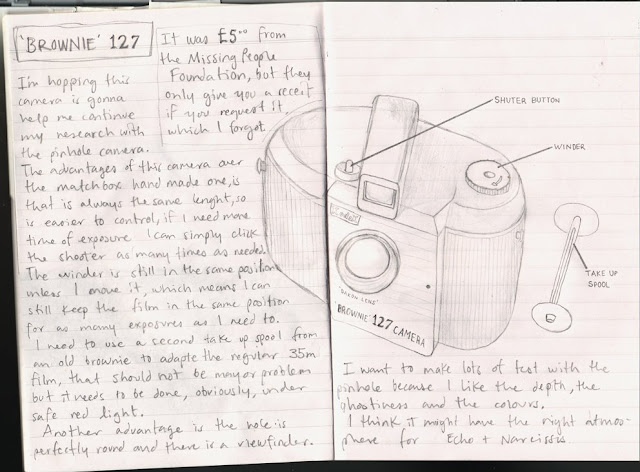 'BROWNIE' 127
I'm hopping this
camera is gonna
help me continue
my research with
the pinhole camera.
The advantages of this camera over
the matchbox hand made one, is
that is always the same lenght, so
is easier to control, if I need more
time of exposure I can simply click
the shooter as many times as needed.
The winder is still in the same position
unless I move it, which means I can
still keep the film in the same position
for as many exposures as I need to.
I need to use a second take up spool from
an old brownie to adapte the regular 35m
film, that should not be mayor problem
but it needs to be done, obviously, under
safe red light.
Another advantage is the hole is
perfectly round and there is a viewfinder.
It was £5.00 from
the Missing People
Foundation, but they
only give you a receit
if you request it,
which I forgot
SHUTER BUTTON
WINDER
TAKE UP
SPOOL
Kodak
'DAKON LENS'
BROWNIE 127 CAMERA
I want to make lots of test with the
pinhole because I like the depth, the
ghostiness and the colours.
I think it might have the right atmos-
phere for Echo + Narcissis